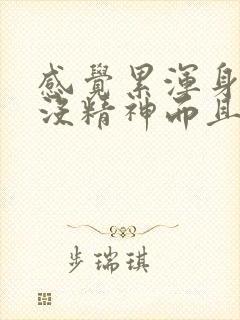 感覺累渾身
沒精神而且
步瑞琪